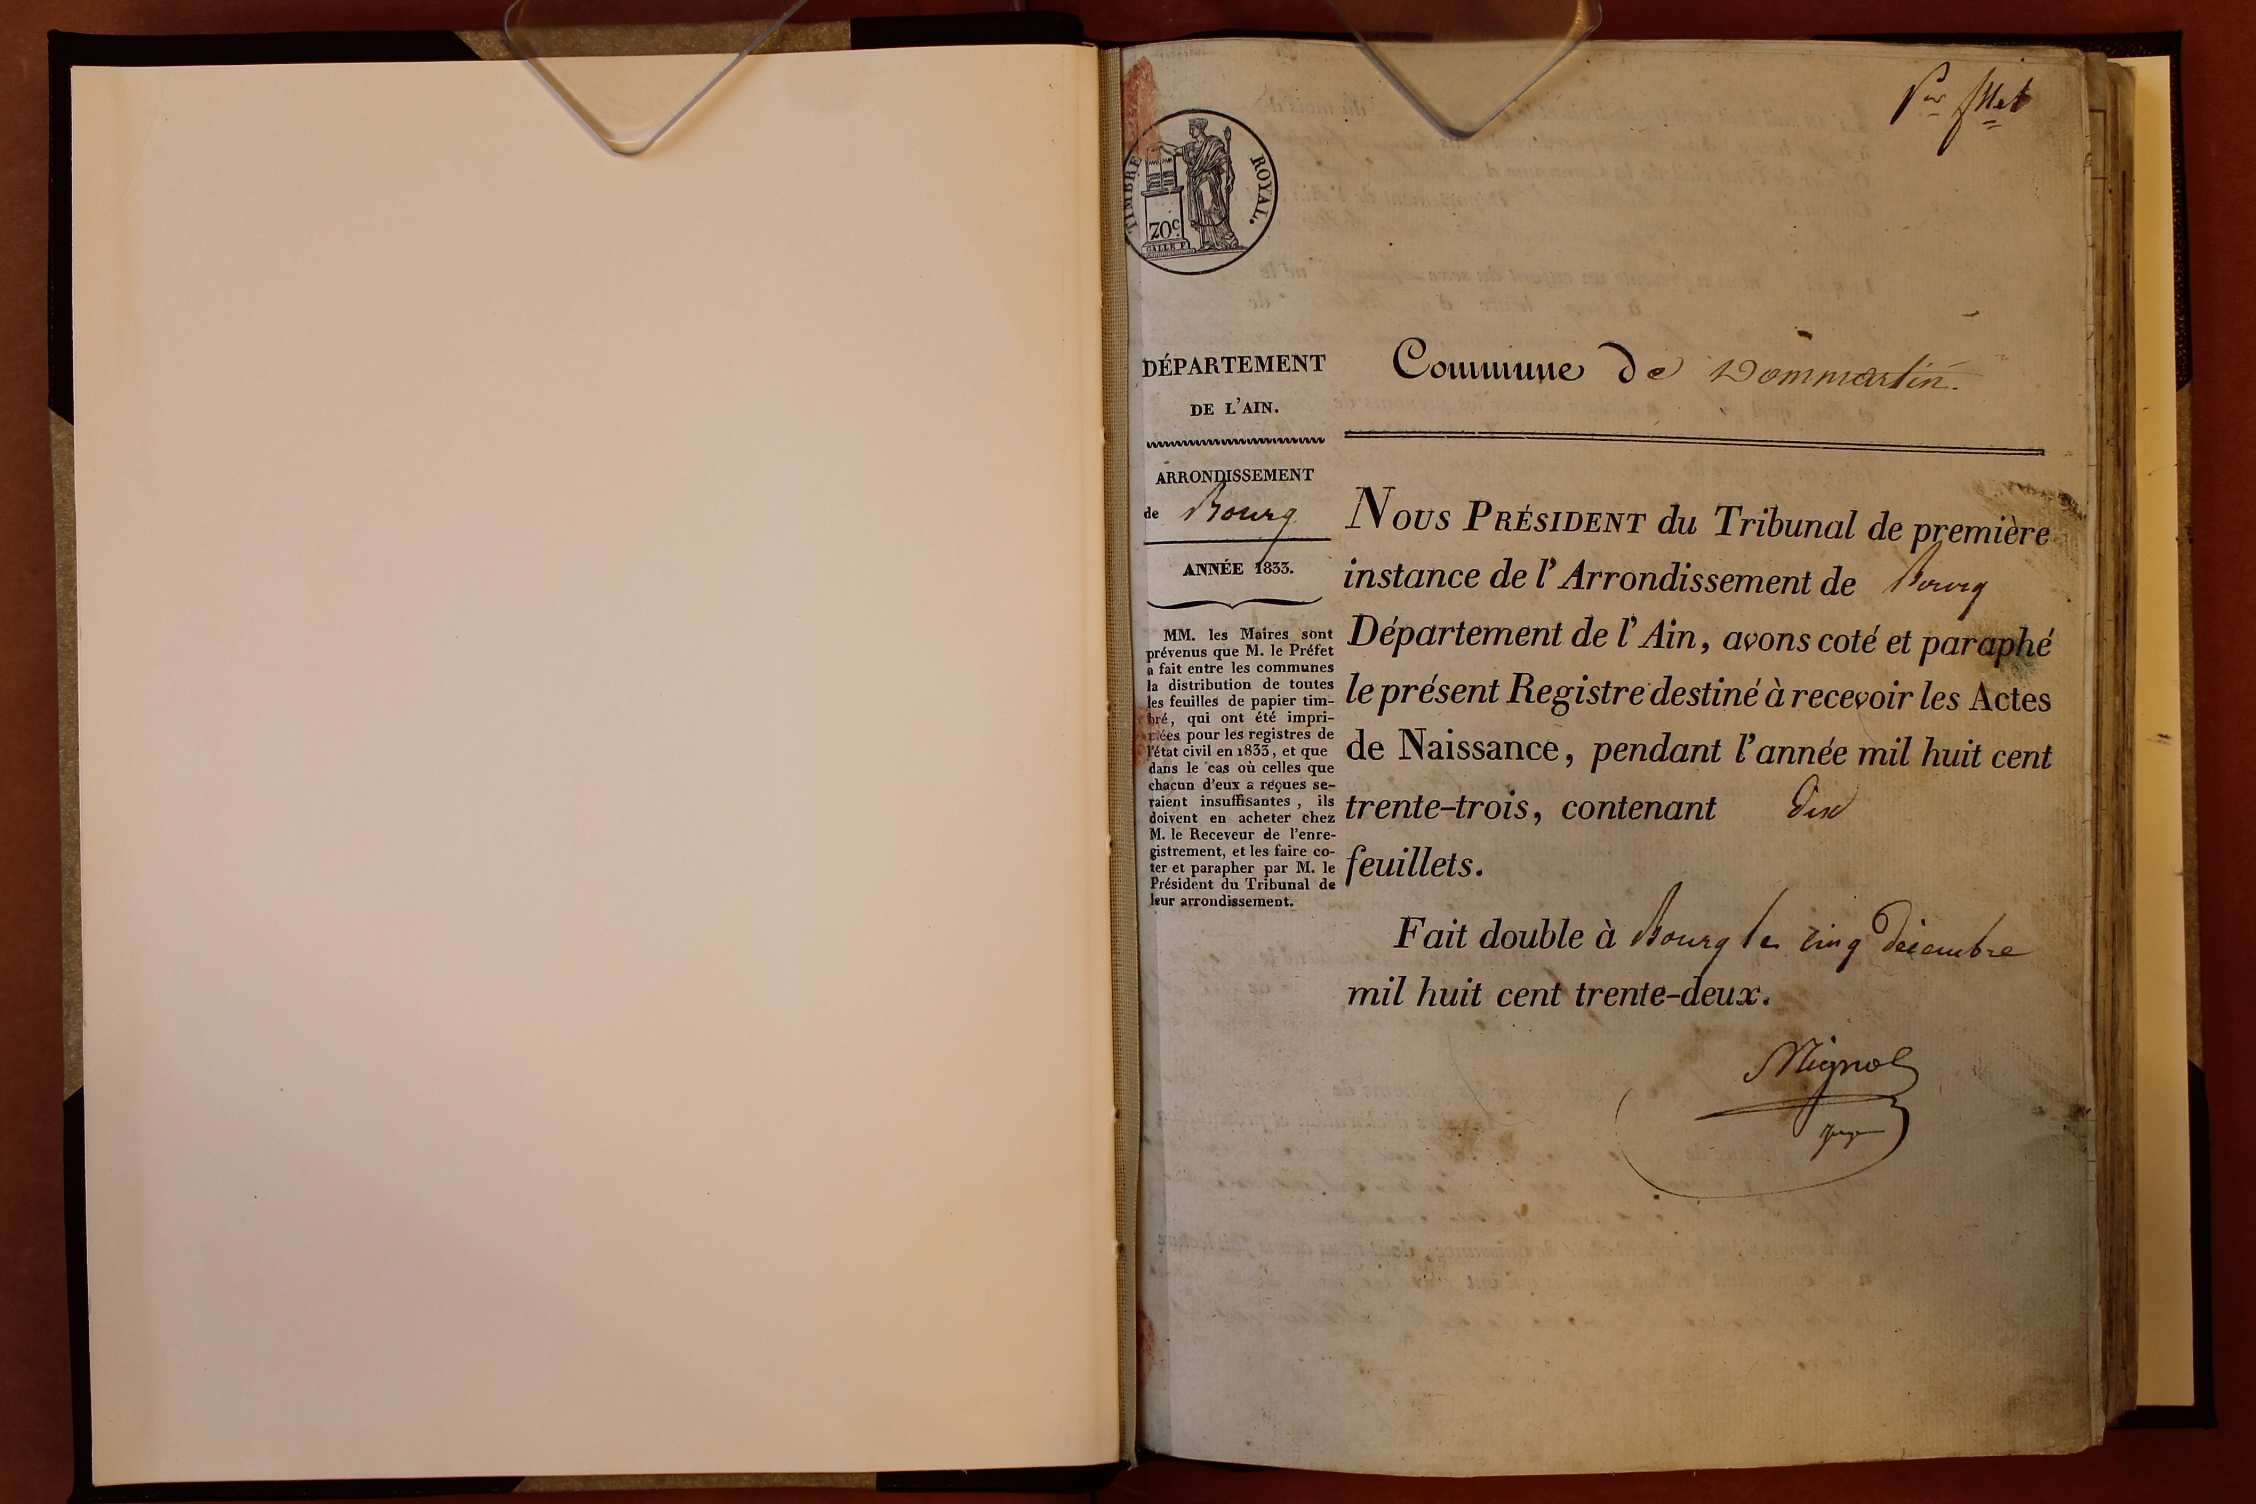 Per f^llet
TIMBRE ROYAL.
70c.
GALLE F.
DÉPARTEMENT
DE L'AIN.
ARRONDISSEMENT
de Bourg
ANNÉE 1833.
MM. les Maires sont
prévenus que M. le Préfet
a fait entre les communes
la distribution de toutes
les feuilles de papier tim-
bré, qui ont été impri-
mées pour les registres de
l'état civil en 1833, et que
dans le cas où celles que
chacun d'eux a reçues se-
raient insuffisantes, ils
doivent en acheter chez
M. le Receveur de l'enre-
gistrement, et les faire co-
ter et parapher par M. le
Président du Tribunal de
leur arrondissement.
Commune de Dommartin.
NOUS PRÉSIDENT du Tribunal de première
instance de l'Arrondissement de Bourg
Département de l'Ain, avons coté et paraphé
le présent Registre destiné à recevoir les Actes
de Naissance, pendant l'année mil huit cent
trente-trois, contenant dix
feuillets.
Fait double à Bourg le cinq Décembre
mil huit cent trente-deux.
Mignot
juge